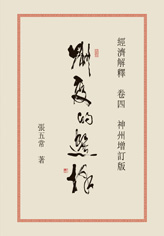 經濟解釋 卷四 神州增訂版
制度的選擇
張五常 著